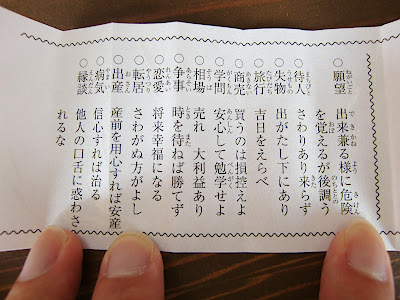 ○願望 出来兼る様に危険
を覚えるが後調う
○待人 さわりあり来らず
○失物 出がたし下にあり
○旅行 吉日をえらべ
○商売 買うのは損控えよ
○学問 安心して勉学せよ
○相場 売れ 大利益あり
○争事 時を待ねば勝てず
○恋愛 将来幸福になる
○転居 さわがぬ方がよし
○出産 産前を用心すれば安産
○病気 信心すれば治る
○縁談 他人の口舌に惑わさ
れるな